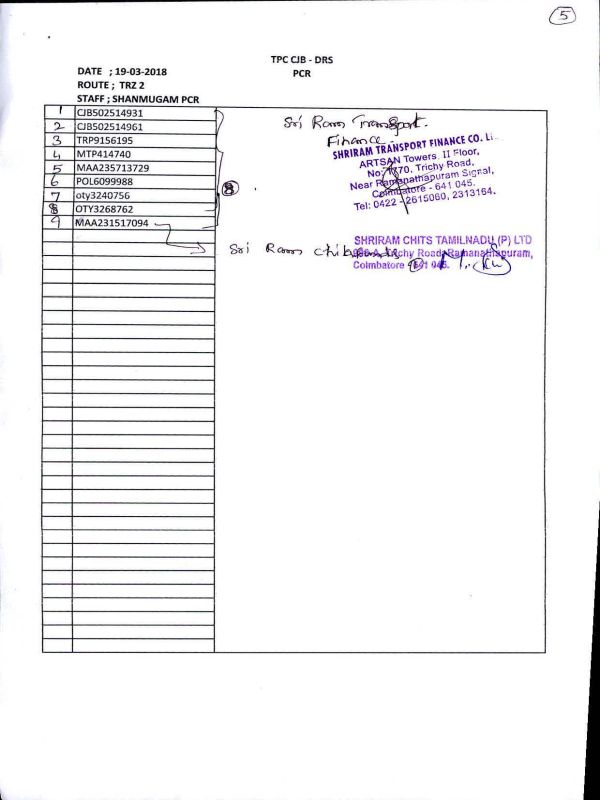 5
TPC CJB - DRS
DATE ; 19-03-2018
PCR
ROUTE ; TRZ 2
STAFF ; SHANMUGAM PCR
1 CJB502514931
2 CJB502514961
3 TRP9156195
4 MTP414740
5 MAA235713729
6 POL6099988
7 oty3240756
8 OTY3268762
9 MAA231517094
8
Sri Ram Transport.
Finance.
SHRIRAM TRANSPORT FINANCE CO. Li
ARTSAN Towers, II Floor,
No: 1770, Trichy Road,
Near Ramanathapuram Signal,
Coimbatore - 641 045.
Tel: 0422 - 2615060, 2313164.
Sri Ram
SHRIRAM CHITS TAMILNADU (P) LTD
Trichy Road, Ramanathapuram,
Coimbatore 641 045.